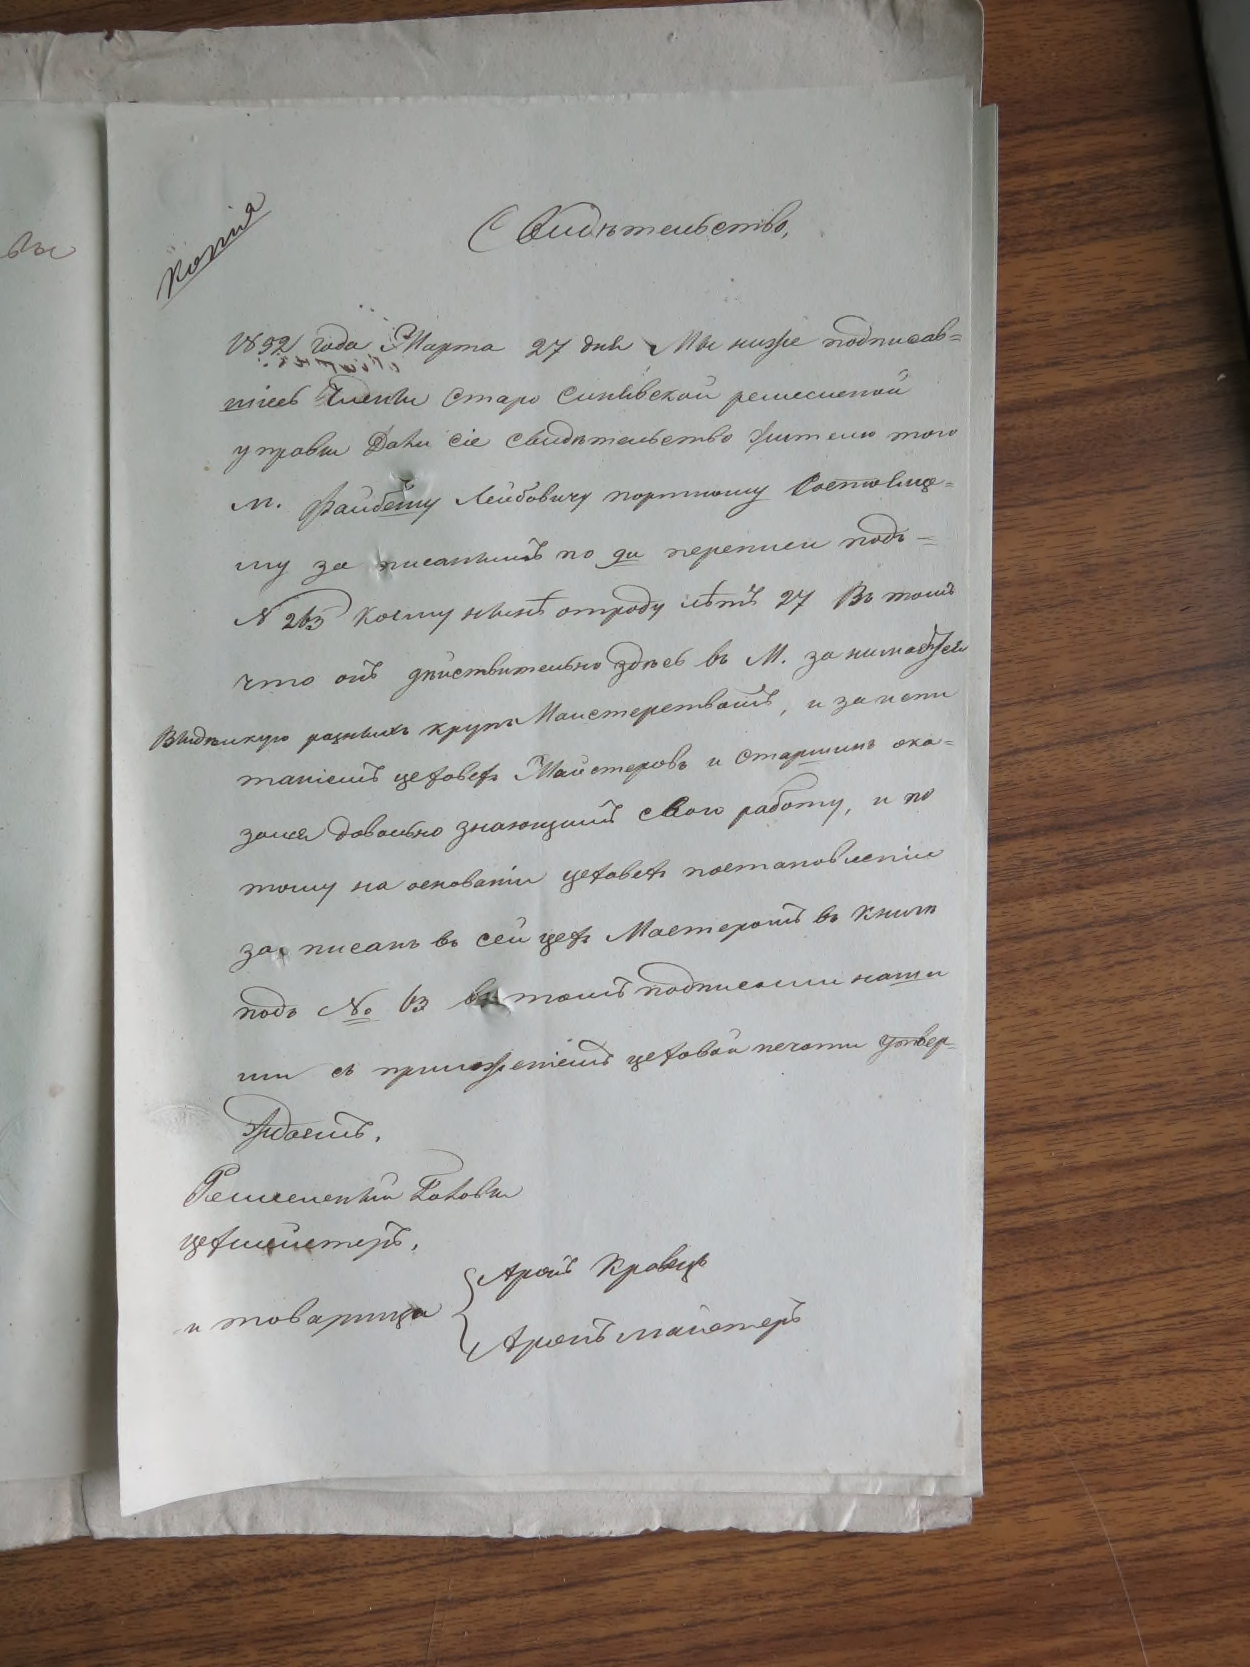 вы
копія
Свидѣтельство,
1892 года Марта 27 дня Мы ниже подписав=
шіесь Члены Старо Синявской ремесленой
управы Дали сіе свидѣтельство жителю того
м. Лейбовичу портному
му за писаннымъ по переписи подъ=
N 263 коему нынѣ отроду лѣтъ 27 Въ томъ
что онъ дѣйствительно здѣсь въ М. занимается
Выдѣлкую разныхъ крупъ Маистерствомъ, и за испи
таніемъ цеховых Майстеровъ и старшинъ ока=
зался довольно знающимъ свою работу, и по
тому на основаніи цеховых постановленіи
за писанъ въ сей цехъ Мастеромъ въ книги
подъ № 63 въ томъ подписами наши
ми съ приложеніемъ цеховой печати утвер=
ждаемъ.
Ремесленный Голова
цехмейстеръ,
и товарища
Аронъ Кравецъ
Аронъ майстеръ